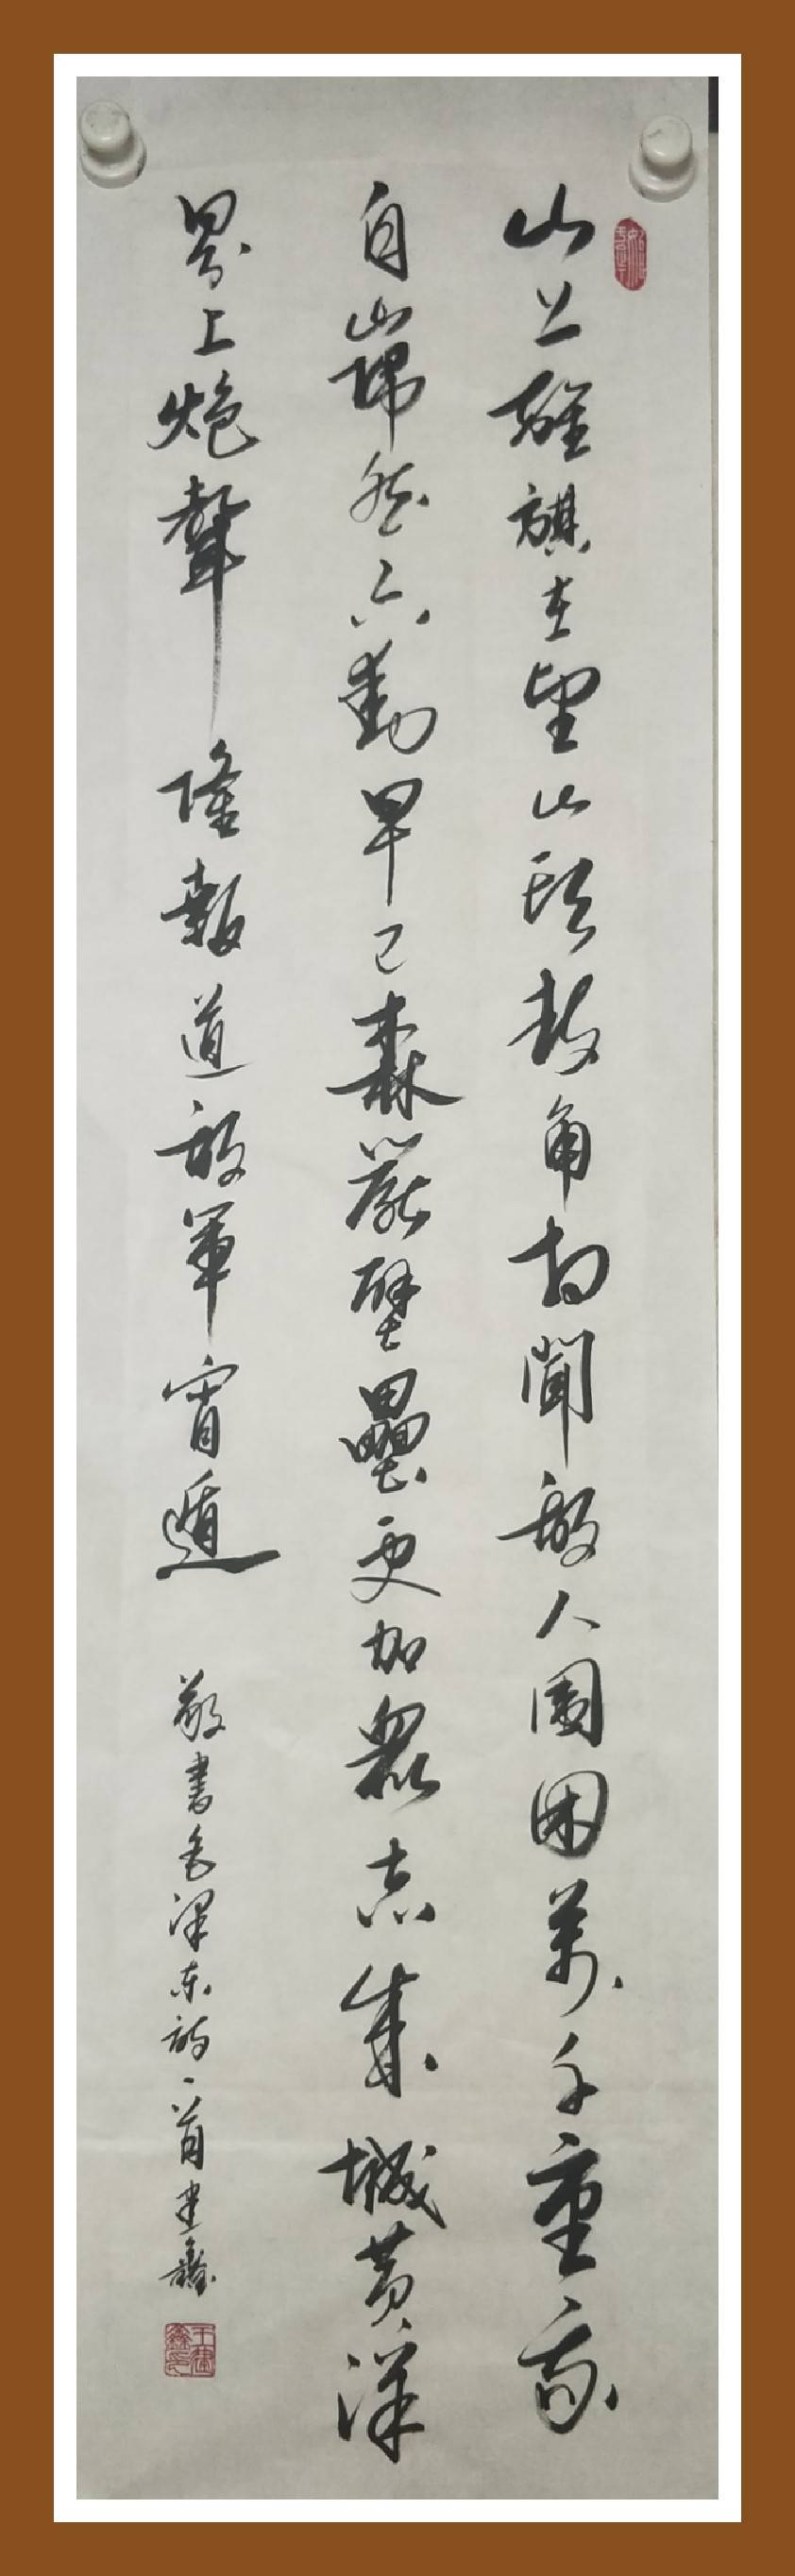 山上旌旗在望山頭鼓角相聞敵人圍困萬千重我
自巋然不動早已森嚴壁壘更加眾志成城黃洋
界上炮聲隆報道敵軍宵遁
敬書毛澤東詞一首建鑫
王建鑫印